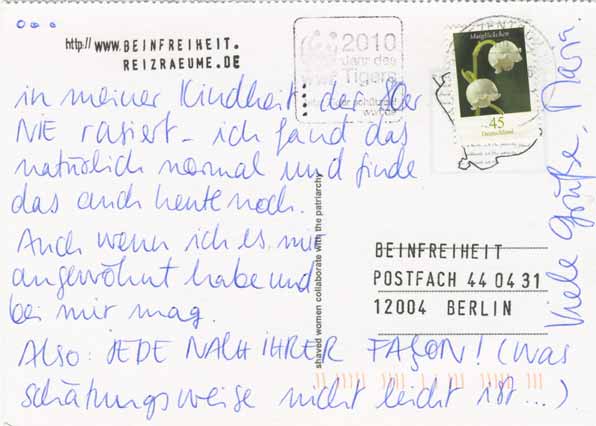 http://www.BEINFREIHEIT.
REIZRAEUME.DE
2010
Jahr des
Tigers
WWF
Maiglöckchen
45
Deutschland
in meiner Kindheit der 80er
NIE rasiert – ich fand das
natürlich normal und finde
das auch heute noch.
Auch wenn ich es mir
angewöhnt habe und
bei mir mag.
Also: JEDE NACH IHRER FAÇON! (was
schätzungsweise nicht leicht ist...)
Viele Grüße,
shaved women collaborate with the patriarchy
BEINFREIHEIT
POSTFACH 44 04 31
12004 BERLIN